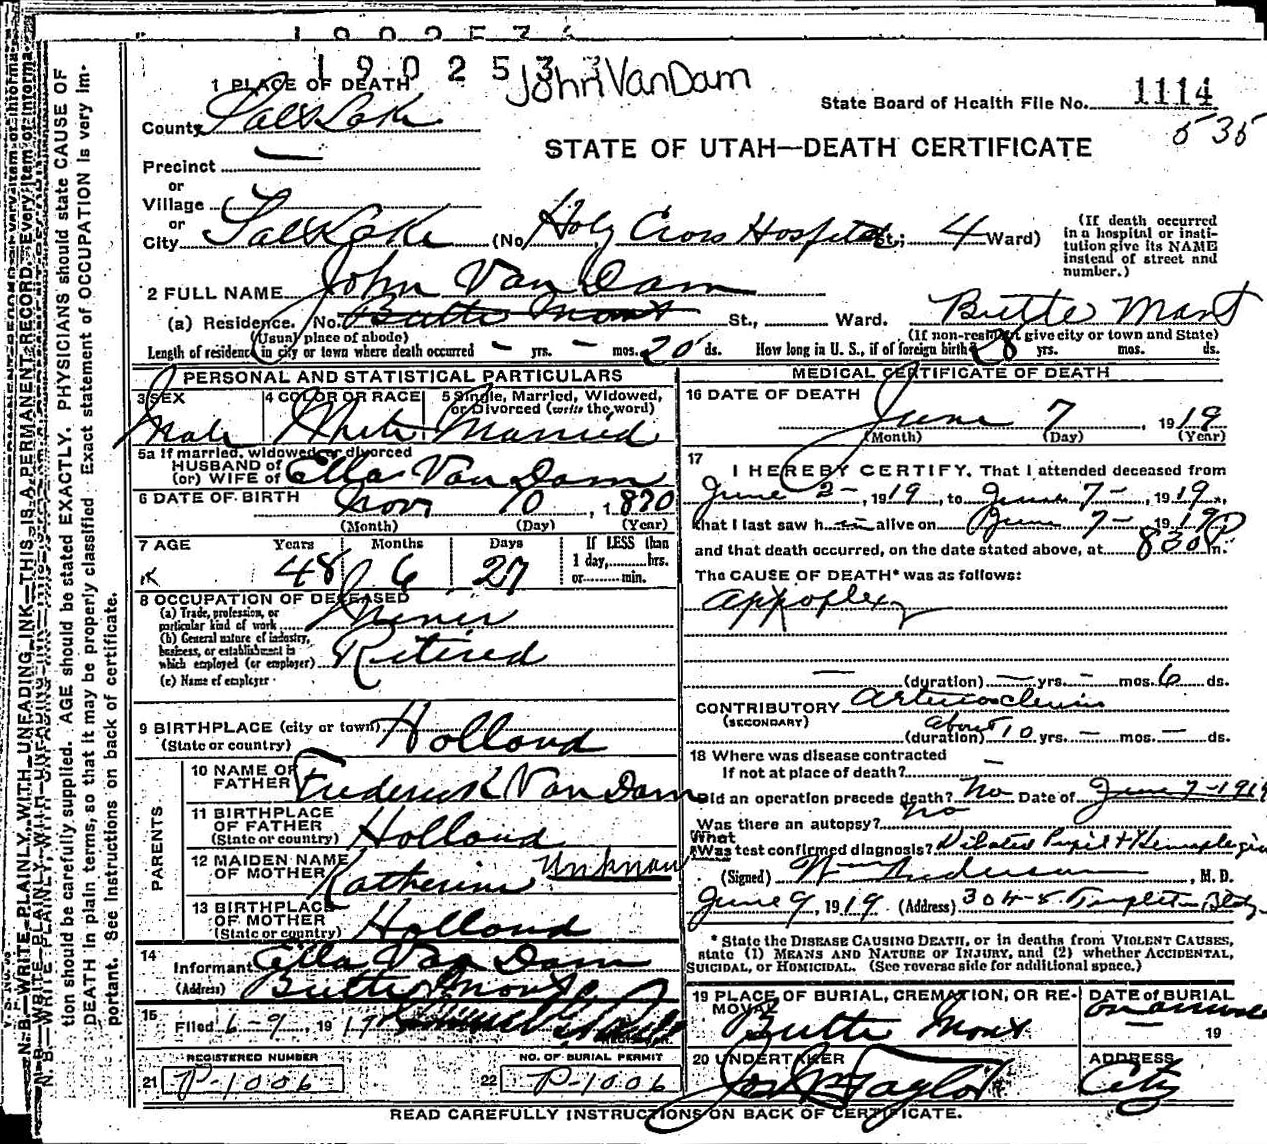 1902536
190253
John Van Dam
1 PLACE OF DEATH
State Board of Health File No. 1114
535
County Salt Lake
STATE OF UTAH—DEATH CERTIFICATE
Precinct
or
Village
or
City Salt Lake (No. Holy Cross Hospital St.; 4 Ward)
(If death occurred in a hospital or institution give its NAME instead of street and number.)
2 FULL NAME John Van Dam
(a) Residence. No. Butte Mont St., Ward. Butte Mont
(Usual place of abode) (If non-resident give city or town and State)
Length of residence in city or town where death occurred - yrs. - mos. 20 ds. How long in U. S., if of foreign birth? 28 yrs. mos. ds.
PERSONAL AND STATISTICAL PARTICULARS
3 SEX 4 COLOR OR RACE 5 Single, Married, Widowed, or Divorced (write the word)
Male White Married
5a If married, widowed or divorced
HUSBAND of
(or) WIFE of Ella Van Dam
6 DATE OF BIRTH Nov 10, 1870
(Month) (Day) (Year)
7 AGE Years Months Days If LESS than
1 day, hrs.
or min.
48 6 27
8 OCCUPATION OF DECEASED
(a) Trade, profession, or particular kind of work Miner
(b) General nature of industry, business, or establishment in which employed (or employer) Retired
(c) Name of employer
9 BIRTHPLACE (city or town) Holland
(State or country)
PARENTS
10 NAME OF FATHER Frederick Van Dam
11 BIRTHPLACE OF FATHER Holland
(State or country)
12 MAIDEN NAME OF MOTHER Katherine Unknown
13 BIRTHPLACE OF MOTHER Holland
(State or country)
14 Informant Ella Van Dam
(Address) Butte Mont
15 Filed 6-9, 1919
REGISTERED NUMBER NO. OF BURIAL PERMIT
21 P-1006 22 P-1006
MEDICAL CERTIFICATE OF DEATH
16 DATE OF DEATH
June 7, 1919
(Month) (Day) (Year)
17 I HEREBY CERTIFY, That I attended deceased from
June 2-, 1919, to June 7-, 1919,
that I last saw him alive on June 7- 1919
and that death occurred, on the date stated above, at 830 P m.
The CAUSE OF DEATH* was as follows:
Appoplexy
(duration) - yrs. - mos. 6 ds.
CONTRIBUTORY Arteriosclerosis
(SECONDARY) about
(duration) 10 yrs. - mos. - ds.
18 Where was disease contracted
If not at place of death? -
Did an operation precede death? No Date of June 7-1919
Was there an autopsy? No
What
Was test confirmed diagnosis? Dilated Pupil + Hemiplegia
(Signed) Wm Anderson, M. D.
June 9, 1919 (Address) 304-5 Templeton Bldg.
* State the DISEASE CAUSING DEATH, or in deaths from VIOLENT CAUSES,
state (1) MEANS AND NATURE OF INJURY, and (2) whether ACCIDENTAL,
SUICIDAL, or HOMICIDAL. (See reverse side for additional space.)
19 PLACE OF BURIAL, CREMATION, OR REMOVAL DATE of BURIAL
Butte Mont on arrival
19
20 UNDERTAKER ADDRESS
Jos Wm Taylor City
READ CAREFULLY INSTRUCTIONS ON BACK OF CERTIFICATE.
N. B.—WRITE PLAINLY, WITH UNFADING INK—THIS IS A PERMANENT RECORD. Every item of informa-
tion should be carefully supplied. AGE should be stated EXACTLY. PHYSICIANS should state CAUSE OF
DEATH in plain terms, so that it may be properly classified Exact statement of OCCUPATION is very im-
portant. See instructions on back of certificate.